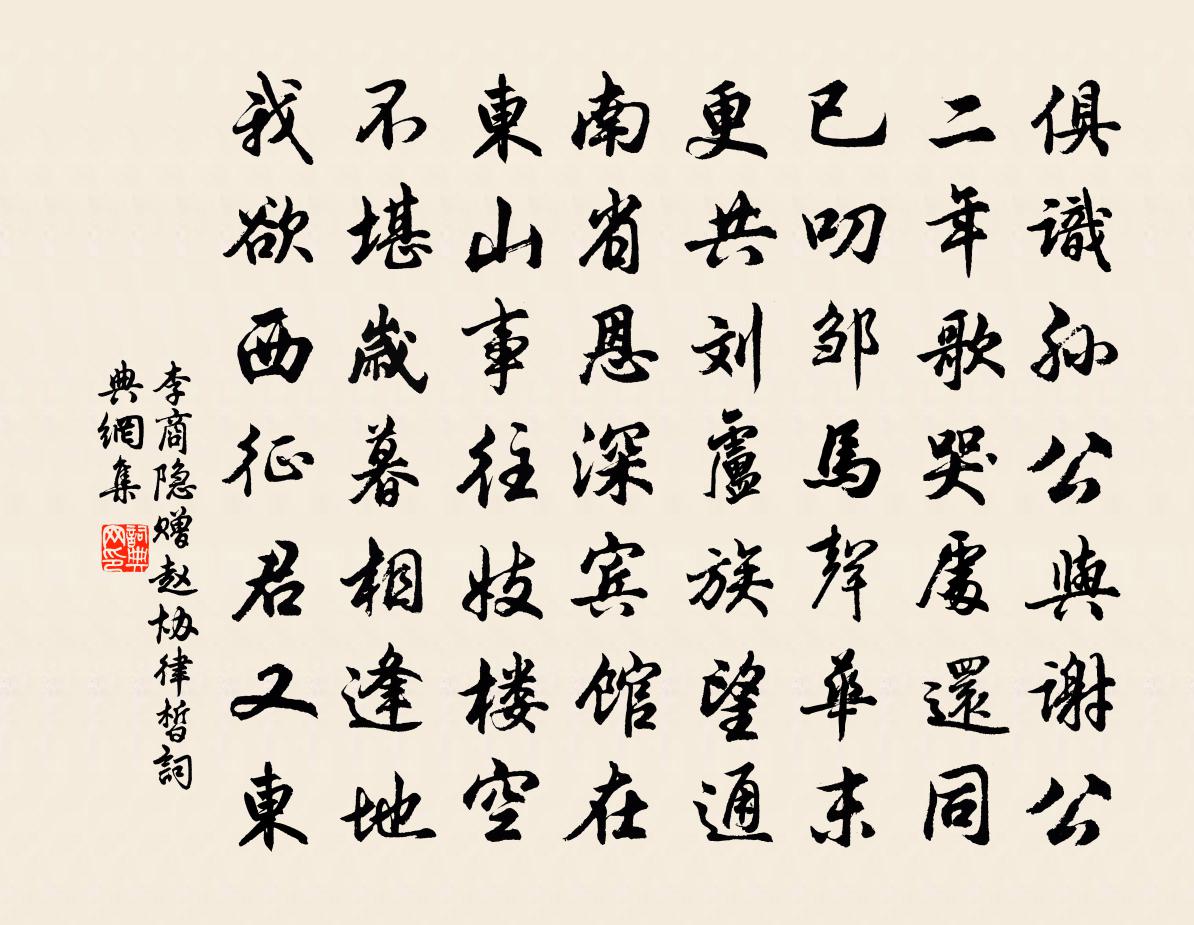 俱識孙公與謝公
二年歌哭處還同
已叨邹馬聲華末
更共刘盧族望通
南省恩深宾馆在
東山事往妓楼空
不堪歲暮相逢地
我欲西征君又東
李商隐赠赵协律皙詞
典網集
詞典
网印